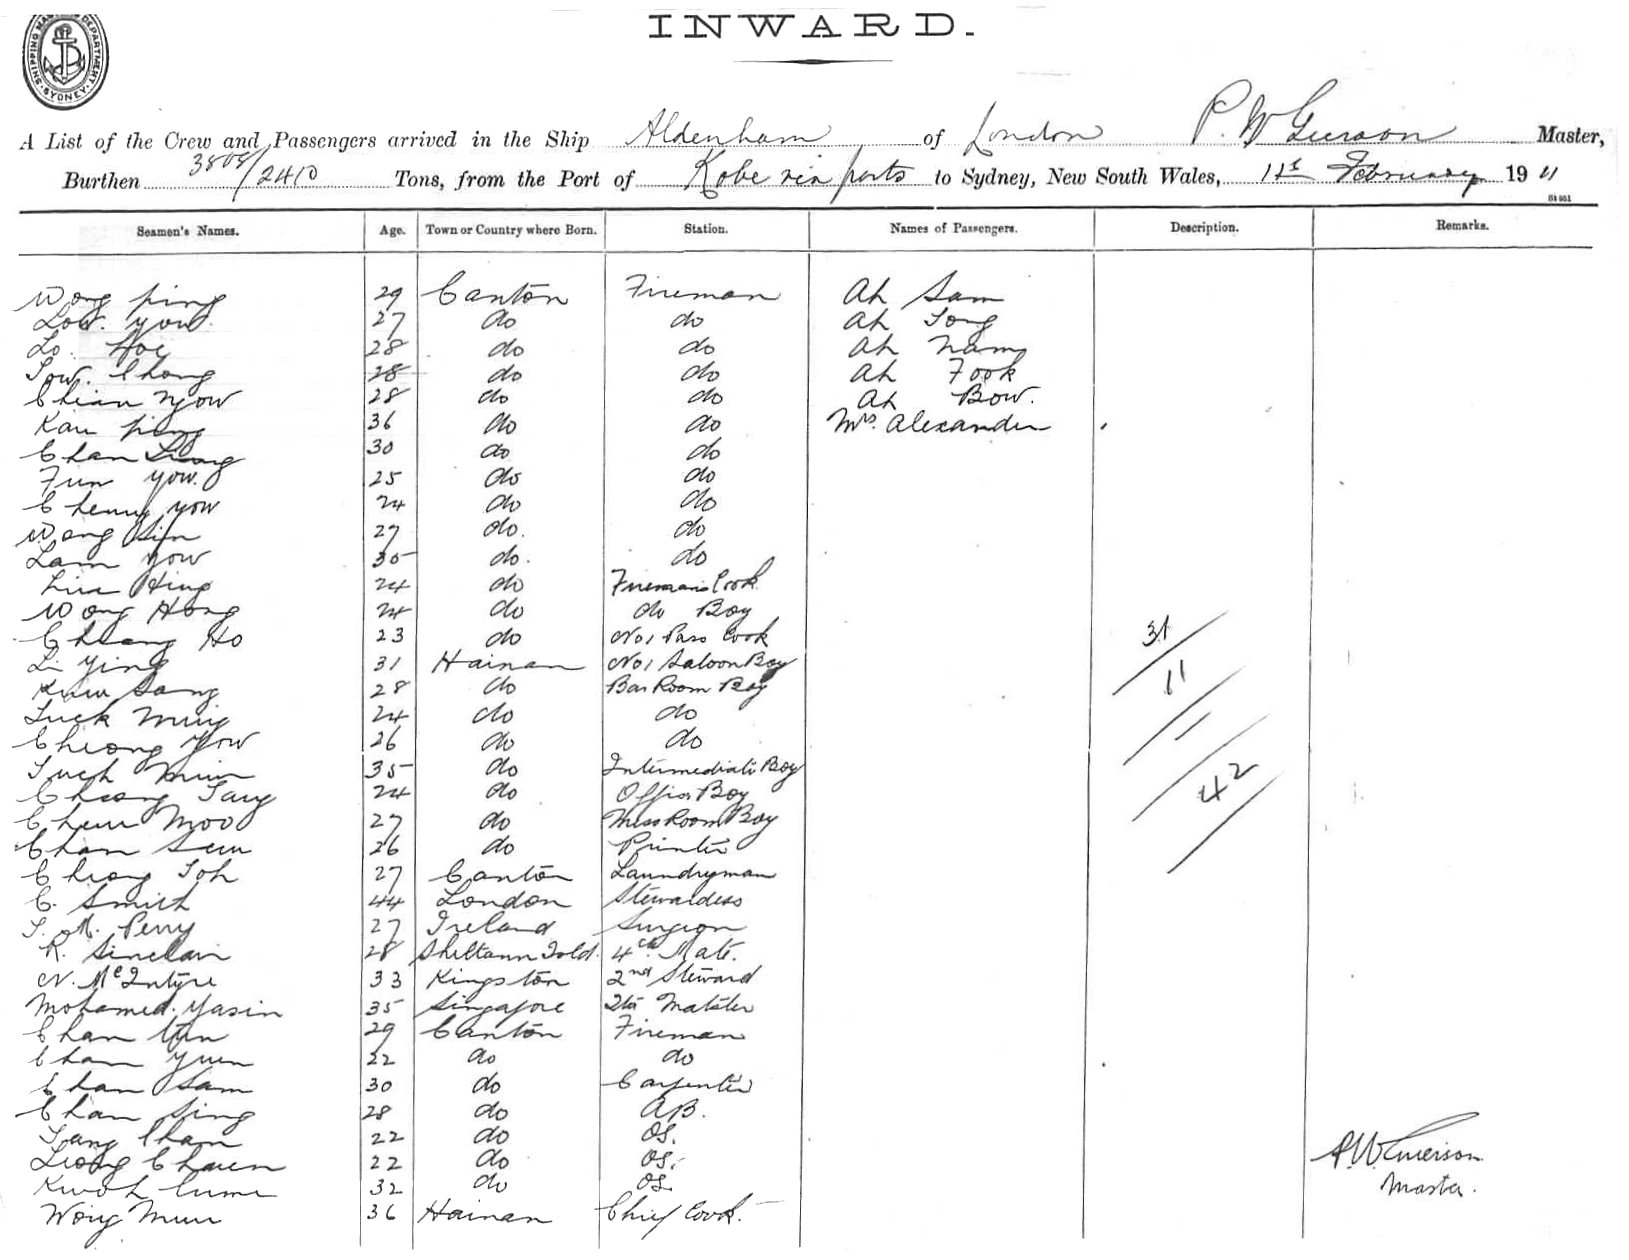 SHIPPING MASTER'S DEPARTMENT SYDNEY
INWARD.
A List of the Crew and Passengers arrived in the Ship Aldenham of London P. W Grierson Master,
Burthen 3808/2410 Tons, from the Port of Kobe via ports to Sydney, New South Wales, 11st February 1911
Seamen's Names. Age. Town or Country where Born. Station. Names of Passengers. Description. Remarks.
Wong ping 29 Canton Fireman Ah Sam
Low. you 27 do do Ah Tong
Lo. Hoe 28 do do Ah Nam
Tow. Chong 28 do do Ah Fook
Chian Nyow 28 do do Ah Bow.
Kau ping 36 do do Mrs. Alexander
Chan 30 do do
Fun yow. 25 do do
Cheung yow 24 do do
Wong Sin 27 do. do
Lam yow 30 do. do
Hing 24 do Firemans Cook
Wong Hong 24 do do Boy
Cheong Ho 23 do No 1 Pass Cook 31
Li Ying 31 Hainan No 1 Saloon Boy
Sang 28 do Bar Room Boy 11
Tuck Ming 24 do do
Cheong Yow 26 do do
35 do Intermediate Boy
Cheong Tang 24 do Office Boy 42
Moo 27 do Mess Room Boy
Chan Sem 26 do Printer
Cheong Toh 27 Canton Laundryman
C. Smith 44 London Stewardess
T. M. Perry 27 Ireland Surgeon
R. Sinclair 28 4th Mate.
N. McIntyre 33 Kingston 2nd Steward
Mohamed. Yasin 35 Singapore
Chan 29 Canton Fireman
Chan Yuen 22 do do
Chan Sam 30 do Carpenter
Chan Sing 28 do AB.
Tang Chan 22 do OS.
Leong Chuen 22 do OS.
Kwok 32 do OS.
Wong Mun 36 Hainan Chief Cook.
P. W. Grierson
Master.